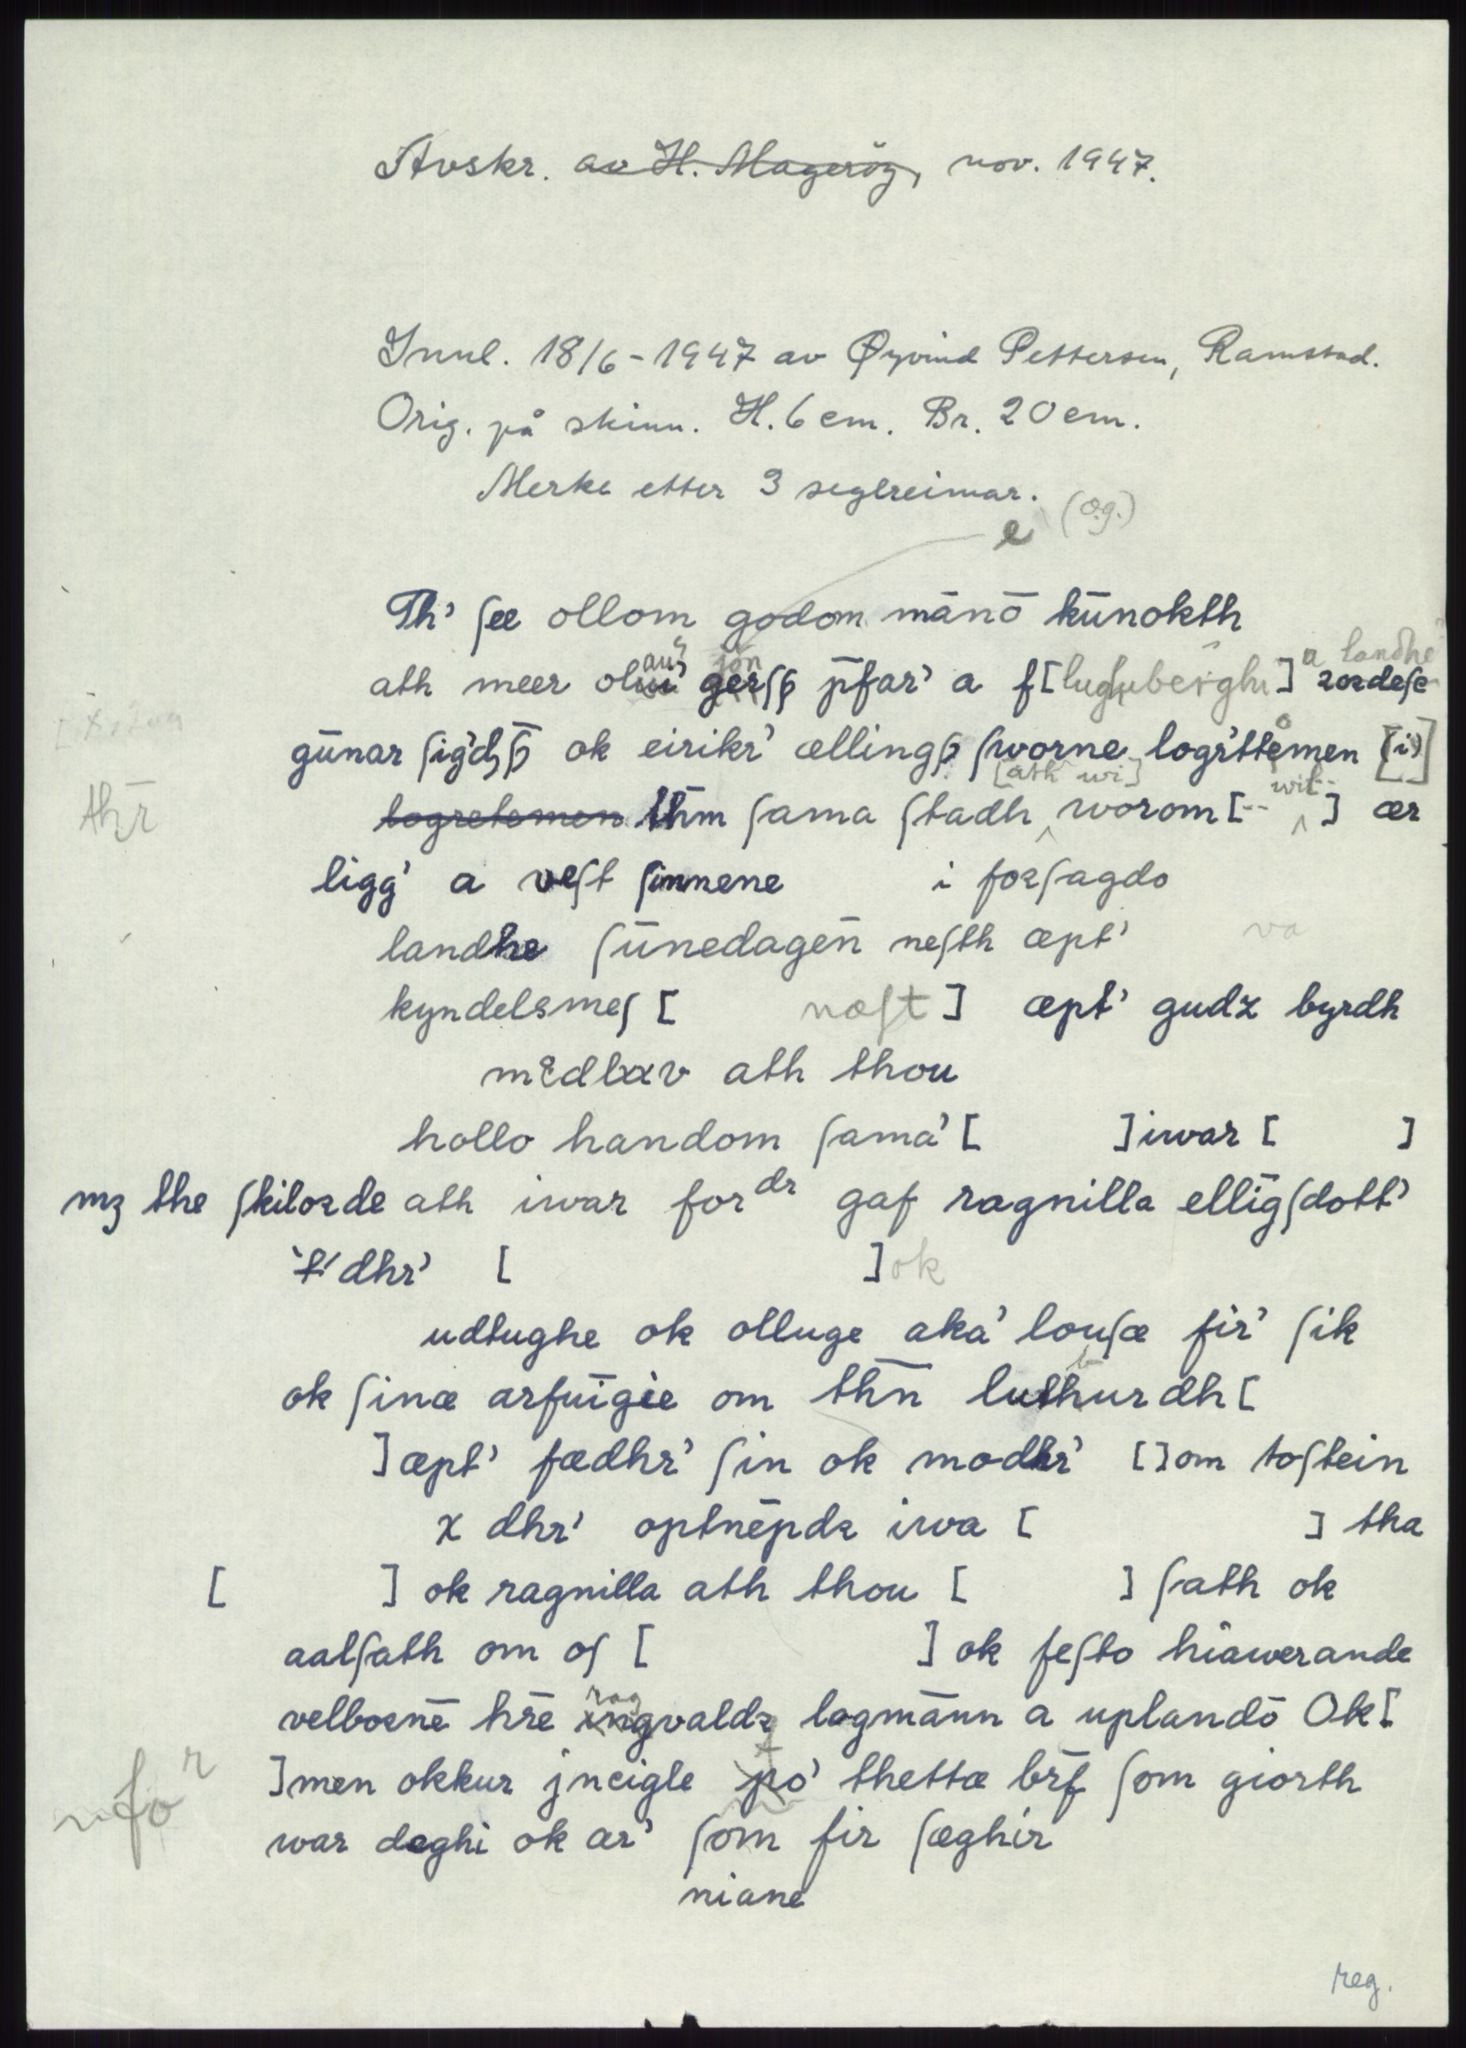 Avskr. av H. Magerøy, nov. 1947.
Innl. 18/6-1947 av Øyvind Pettersen, Ramstad.
Orig. på skinn. H. 6 cm. Br. 20 cm.
Merke etter 3 seglreimar.
e (o.g.)
Th' ſee ollom godom mānō kūnokth
a landhe
ath meer ol jon p̄far' a f[ ] ꝛoꝛdeſe
gūnar ok eirikr' ælling ſworne logr'ttomen [(i)]
[ath wi] wit
thr̄
logretomen thm̄ ſama ſtadh worom [-- ] ær
ligg' a veſt ſinnene i foꝛſagdo
landhe ſūnedagen̄ neſth æpt' va
kyndelsmeſ [ næſt ] æpt' gudz byrdh
mcdlxxv ath thou
hollo handom ſama' [ ] iwar [ ]
mꝫ the ſkiloꝛde ath iwar for dr gaf ragnilla ellīgſdott'
dhr' [ ] ok
udtughe ok olluge aka' louſæ fir' ſik
ok ſinæ arfuīgie om thn̄ luthurdh [
] æpt' fædhr' ſin ok modhr' [ ] om toſtein
x dhr' optnēpdꝛ iwa [ ] tha
[ ] ok ragnilla ath thou [ ] ſath ok
aalſath om oſ [ ] ok feſto hiawerande
rag
velboꝛnē hr̄e ingvaldꝛ lagmānn a uplandō Ok [
] men okkur jncigle po' thettæ br̄f ſom giorth
r
nfo
war deghi ok ar' ſom fir ſæghir
niane
reg.